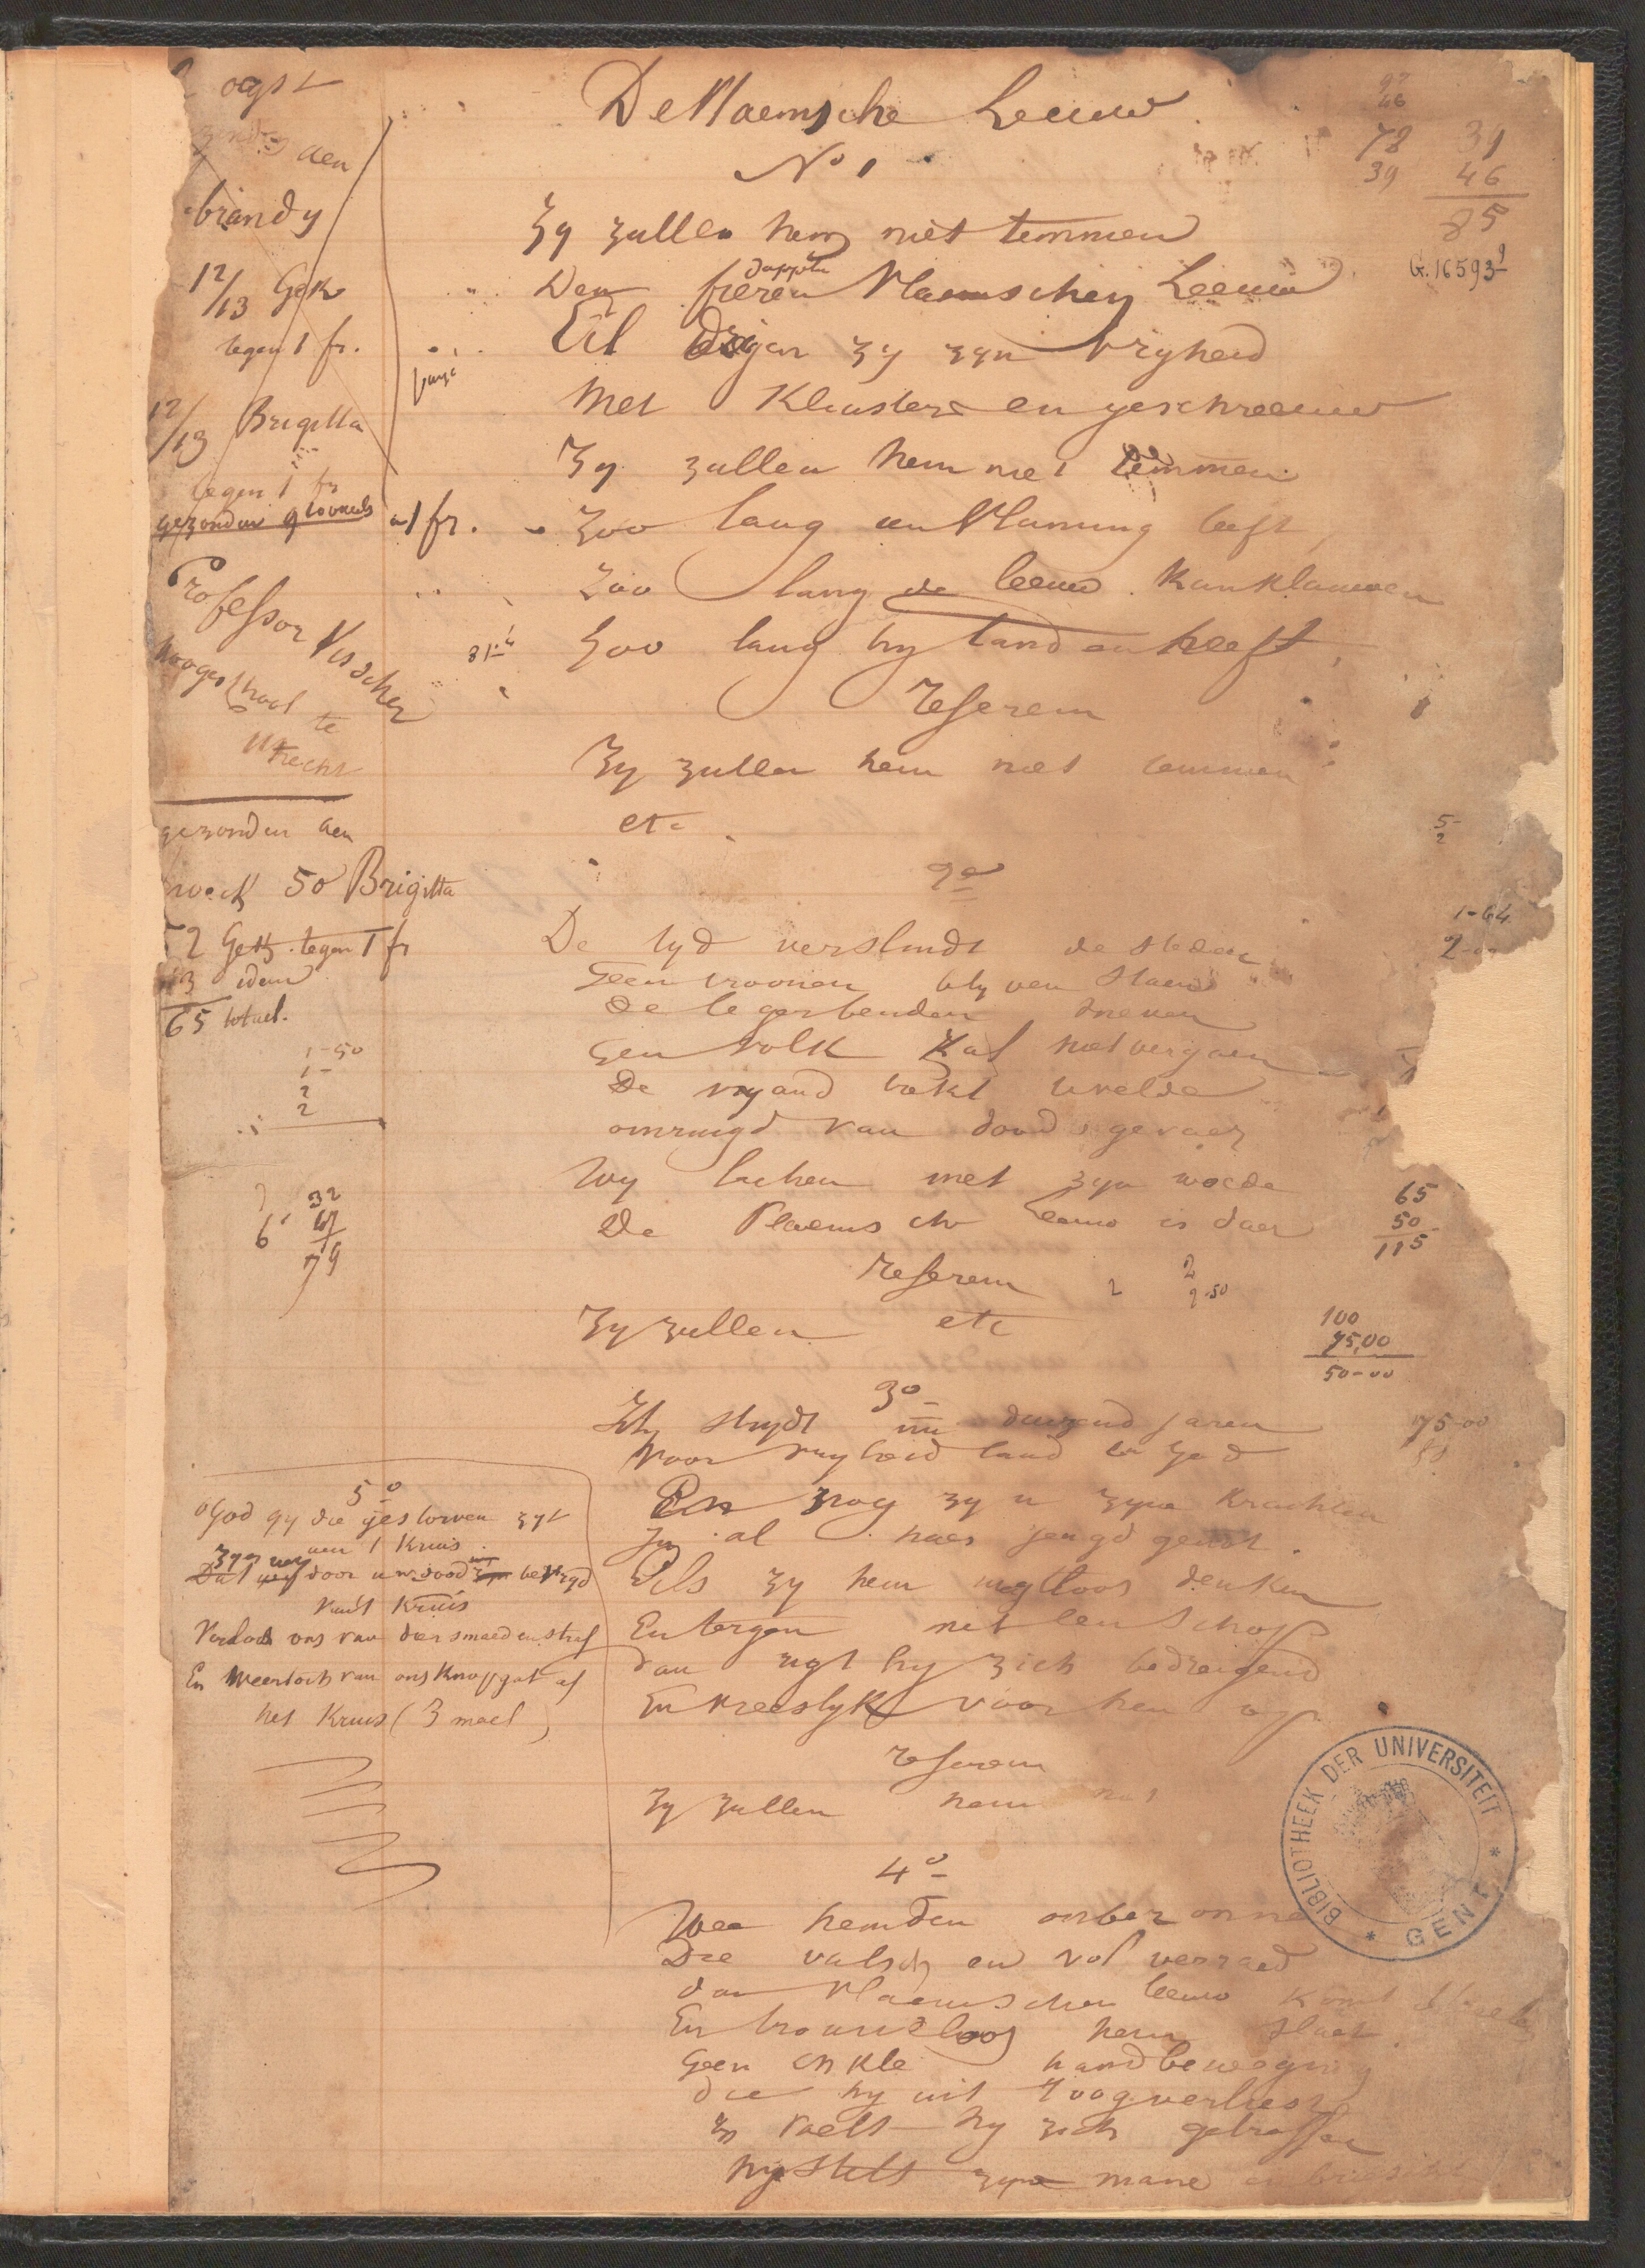 De Vlaemsche Leeuw
N° 1
Zy zullen hem niet temmen
dapplen
Den fieren Vlaemschen Leeuw
Al dreigen zy zyn vryheid
Met Kluisters en geschreeuw
Zy zullen hem niet temmen
Zoo lang een Vlaming leeft,
Zoo lang de leeuw kan klauwen
Zoo lang hy tanden heeft,
Referein
Zy zullen hem niet temmen
etc.
2°
De tyd verslindt de steden
Geen troonen blyven staen
De legerbenden sneven
Geen volk zal niet vergaen
De vyand trekt te velde
omringd van doodsgevaer
Wy lachen met zyn woede
De Vlaemsche Leeuw is daer
Referein
Zy zullen etc
3°
Hy strydt nu duizend jaren
Voor vryheid land en God
En nog zyn zyne Krachten
In al haer jeugd genot.
Als zy hem magtloos denken
En tergen met een schop
dan rigt hy zich bedreigend
En vreeslyk voor hen op
Referein
Zy zullen hem niet
4°
Wee hem den onbezonne
Die valsch en vol verraed
dan Vlaemschen leeuw komt streele
En trouwloos hem slaet.
Geen enkle handbeweging
die hy uit 't oog verliest
En voelt hy zich getroffen
hy stelt zyne mane en briescht
ogst
aen
brandy
12/13 Gek
tegen 1 fr.
12/13 Brigitta
tegen 1 fr
gezonden
a 1 fr.
Professor Visscher
hoogeschool te
Utrecht
gezonden aen
50 Brigitta
12 Gek. tegen 1 fr
13 idem
65 totael.
1-50
1-
2
2
6
32
79
5°
o God gy die gestorven zyt
aen 't Kruis
door uw dood bevryd
van 't Kruis
Verlost ons van dier smaed en straf
En weert och van ons Knopgat af
het Kruis (3 mael)
78
39
39
46
85
G. 16593¹
5-
2
1-64
65
50
115
2
2
2-50
100
75,00
50-00
75-00
BIBLIOTHEEK DER UNIVERSITEIT
* GENT *